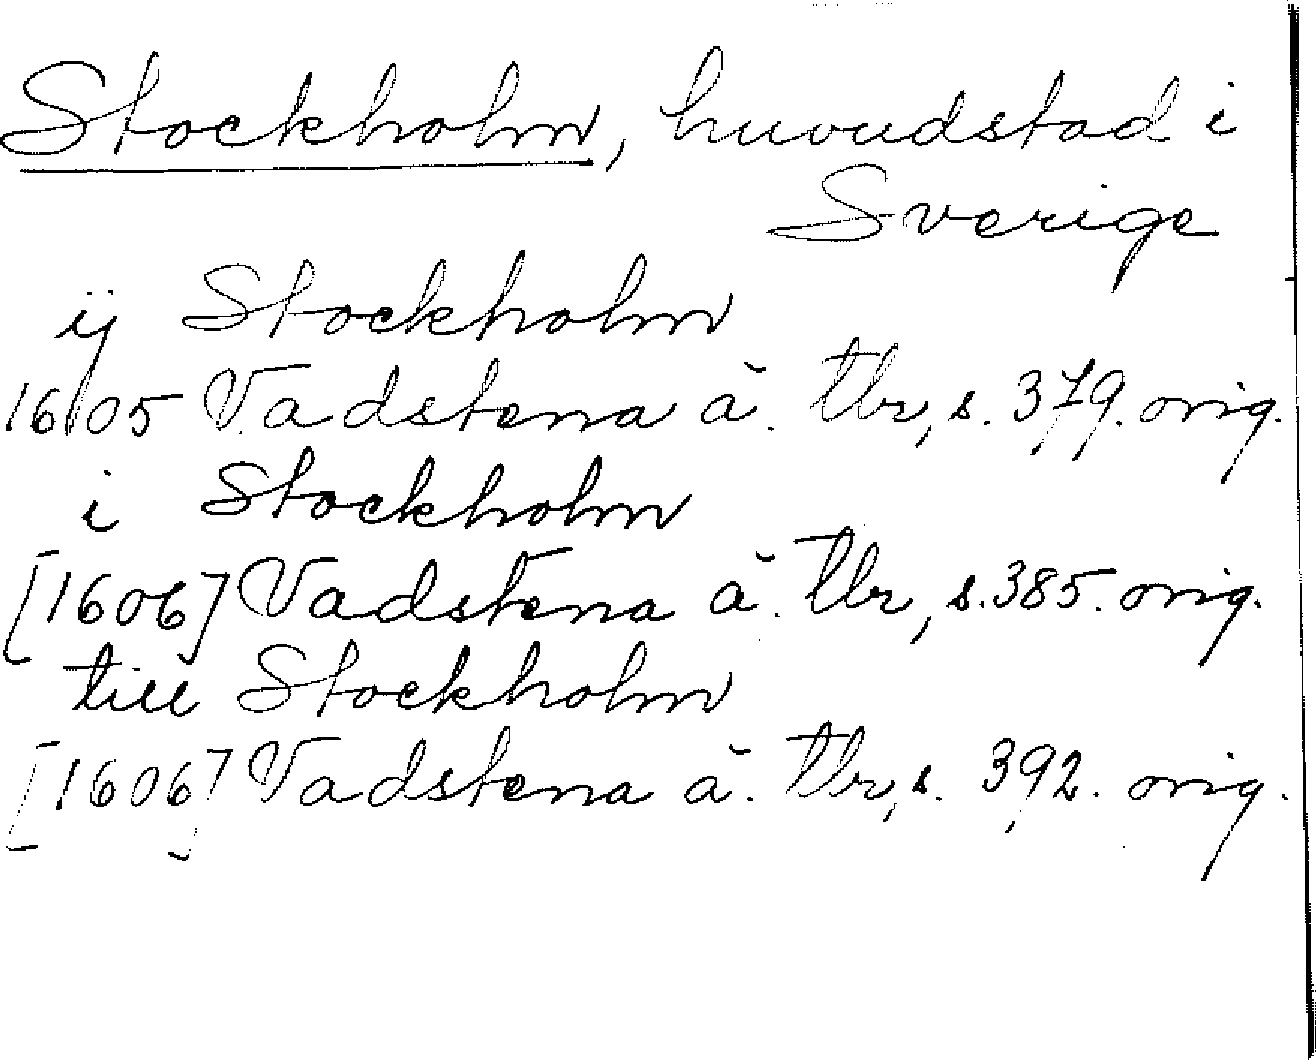 Stockholm, huvudstad i
Sverige
ij Stockholm
1605 Vadstena ä. tbr, s. 379. orig.
i Stockholm
[1606] Vadstena ä. tbr, s. 385. orig.
till Stockholm
[1606] Vadstena ä. tbr, s. 392. orig.